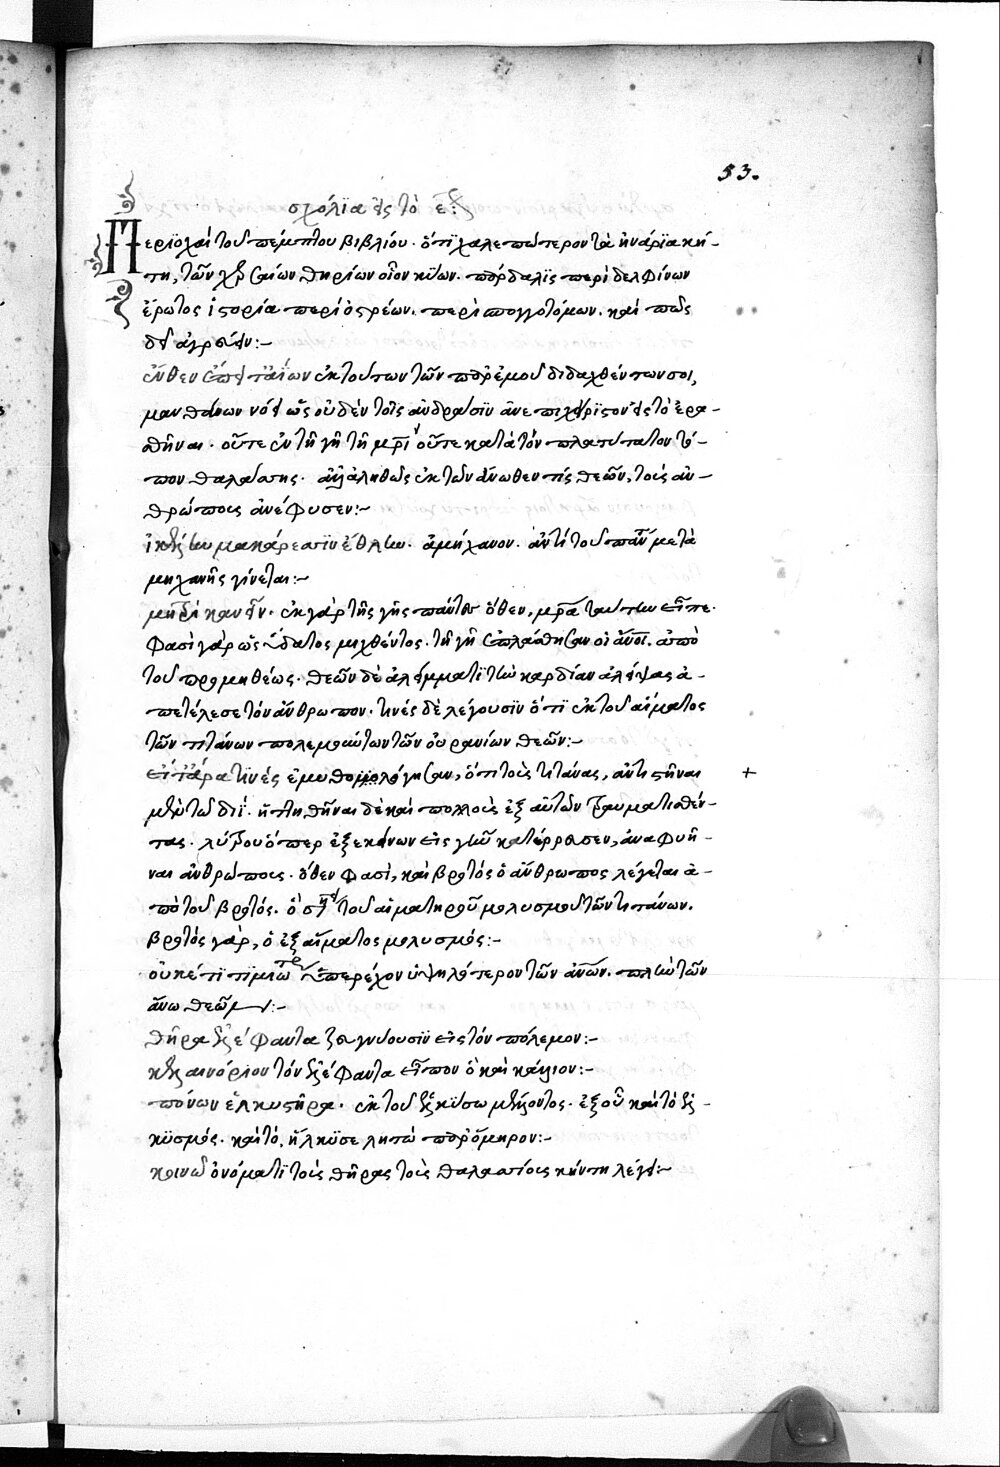 53.
σχόλια εἰς τὸ ε:
Περιοχαὶ τοῦ πέμπτου βιβλίου. ὅτι χαλεπώτερον τὰ ἐνάλια κή-
τη, τῶν χερσαίων θηρίων οἷον κύων. πόρδαλις περὶ δελφίνων
ἔρωτος ἱστορία περὶ ὀστρέων. περὶ σπογγοτόμων. καὶ πῶς
δεῖ ἀγρεύειν:-
ἔνθεν ἐκ τούτων τῶν παρ' ἐμοῦ διδαχθέντων σοι,
μανθάνων νόει ὡς οὐδὲν τοῖς ἀνδράσιν ἀνεπιχείριστον εἰς τὸ ἐρα-
θῆναι. οὔτε ἐν τῇ γῇ τῇ μρὶ οὔτε κατὰ τὸν πλατύτατον τό-
πον θαλάσσης. ἀληθῶς ἐκ τῶν ἄνωθέν τις θεῶν, τοὺς ἀν-
θρώπους ἀνέφυσεν:-
ἴκελα μακάρεσσιν ἔθηκεν. ἀμήχανον. ἀντὶ τοῦ πᾶν μετὰ
μηχανῆς γίνεται:-
ἐκ γὰρ τῆς γῆς πάντα ὅθεν, μρα ταύτην εἶπε.
Φασὶ γὰρ ὡς ὕδατος μιχθέντος. τῇ γῇ ἐπλάσθησαν οἱ ἄνοι. ἀπὸ
τοῦ προμηθέως. θεῶν δὲ ἀλείμματι τὴν καρδίαν ἀλείψας ἀ-
πετέλεσε τὸν ἄνθρωπον. τινὲς δὲ λέγουσιν ὅτι ἐκ τοῦ αἵματος
τῶν τιτάνων πολεμούντων τῶν οὐρανίων θεῶν:-
εἴτ' ἄρα τινές ἐμυθολόγησαν, ὅτι τοὺς τιτάνας, ἀντιστῆναι +
μετὰ τῷ διί. ἡττηθῆναι δὲ καὶ πολλοὺς ἐξ αὐτῶν τραυματισθέν-
τας. λύθρου ὅπερ ἐξ ἐκείνων εἰς γῆν κατέρρευσεν, ἀναφυῆ-
ναι ἀνθρώπους. ὅθεν φασὶ, καὶ βροτὸς ὁ ἄνθρωπος λέγεται ἀ-
πὸ τοῦ βροτός. ὅ ἐστι τοῦ αἱματηροῦ μολυσμοῦ τῶν τιτάνων.
βροτὸς γὰρ, ὁ ἐξ αἵματος μολυσμός:-
οὐκέτι τιμιώτερον ὑπερέχον ὑψηλότερον τῶν ἀνων. πλὴν τῶν
ἄνω θεῶν:-
θῆρα ἐλέφαντα ζευγνύουσιν εἰς τὸν πόλεμον:-
τὸν ἐλέφαντα εἶπον ὃ καὶ κάλλιον:-
πόνων ἑλκυστῆρα. ἐκ τοῦ ἑλκύσω μέλλοντος. ἐξ οὗ καὶ τὸ ἑλ-
κυσμός. καὶ τὸ, ἥλκυσε λητὼ παρ' ὁμήρου:-
κοινῷ ὀνόματι τοὺς θῆρας τοὺς θαλασσίους κήτη λέγει:-